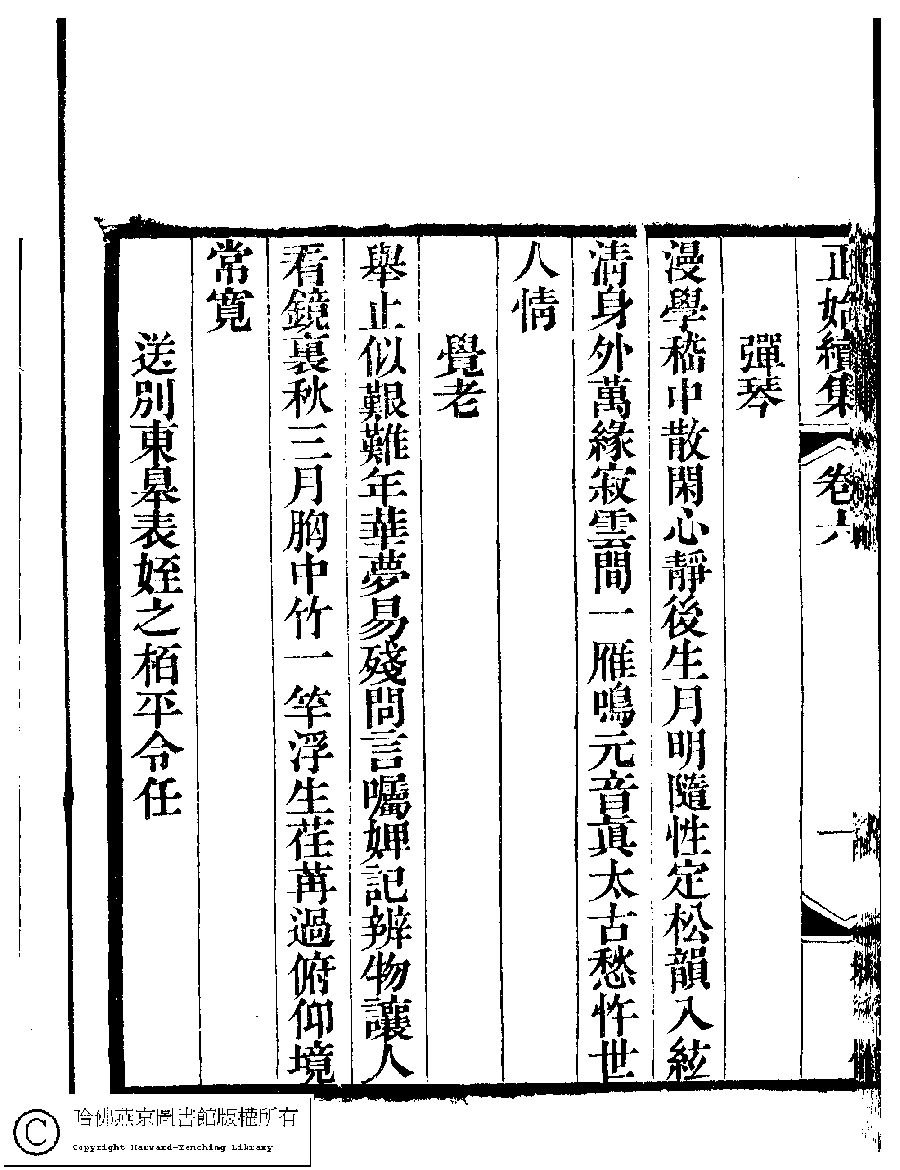 正始續集 卷六 一
彈琴
漫學嵇中散閑心靜後生月明隨性定松韻入絃
清身外萬緣寂雲間一雁鳴元音眞太古愁忤世
人情
覺老
舉止似艱難年華夢易殘問言囑婢記辨物讓人
看鏡裏秋三月胸中竹一竿浮生荏苒過俯仰境
常寬
送別東皋表姪之栢平令任
哈佛燕京圖書館版權所有
Copyright Harvard-Yenching Library